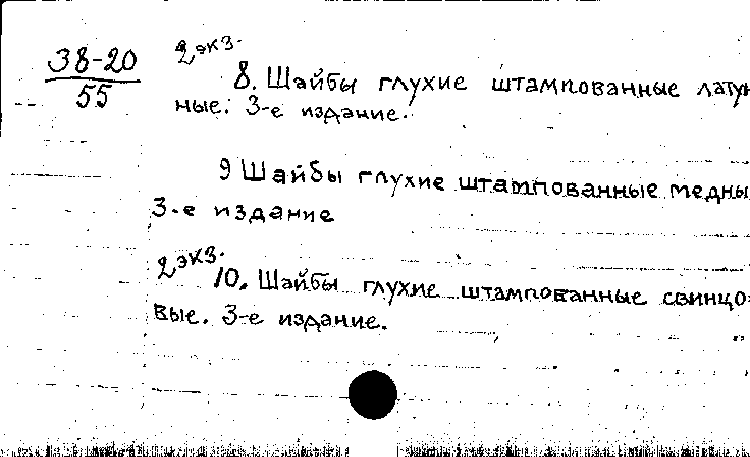 38-20
55
2 экз.
8. Шайбы глухие штампованные латун
ные. 3-е издание.
9 Шайбы глухие штампованные медны
3-е издание
2 экз.
10. Шайбы глухие штампованные свинцо-
вые. 3-е издание.